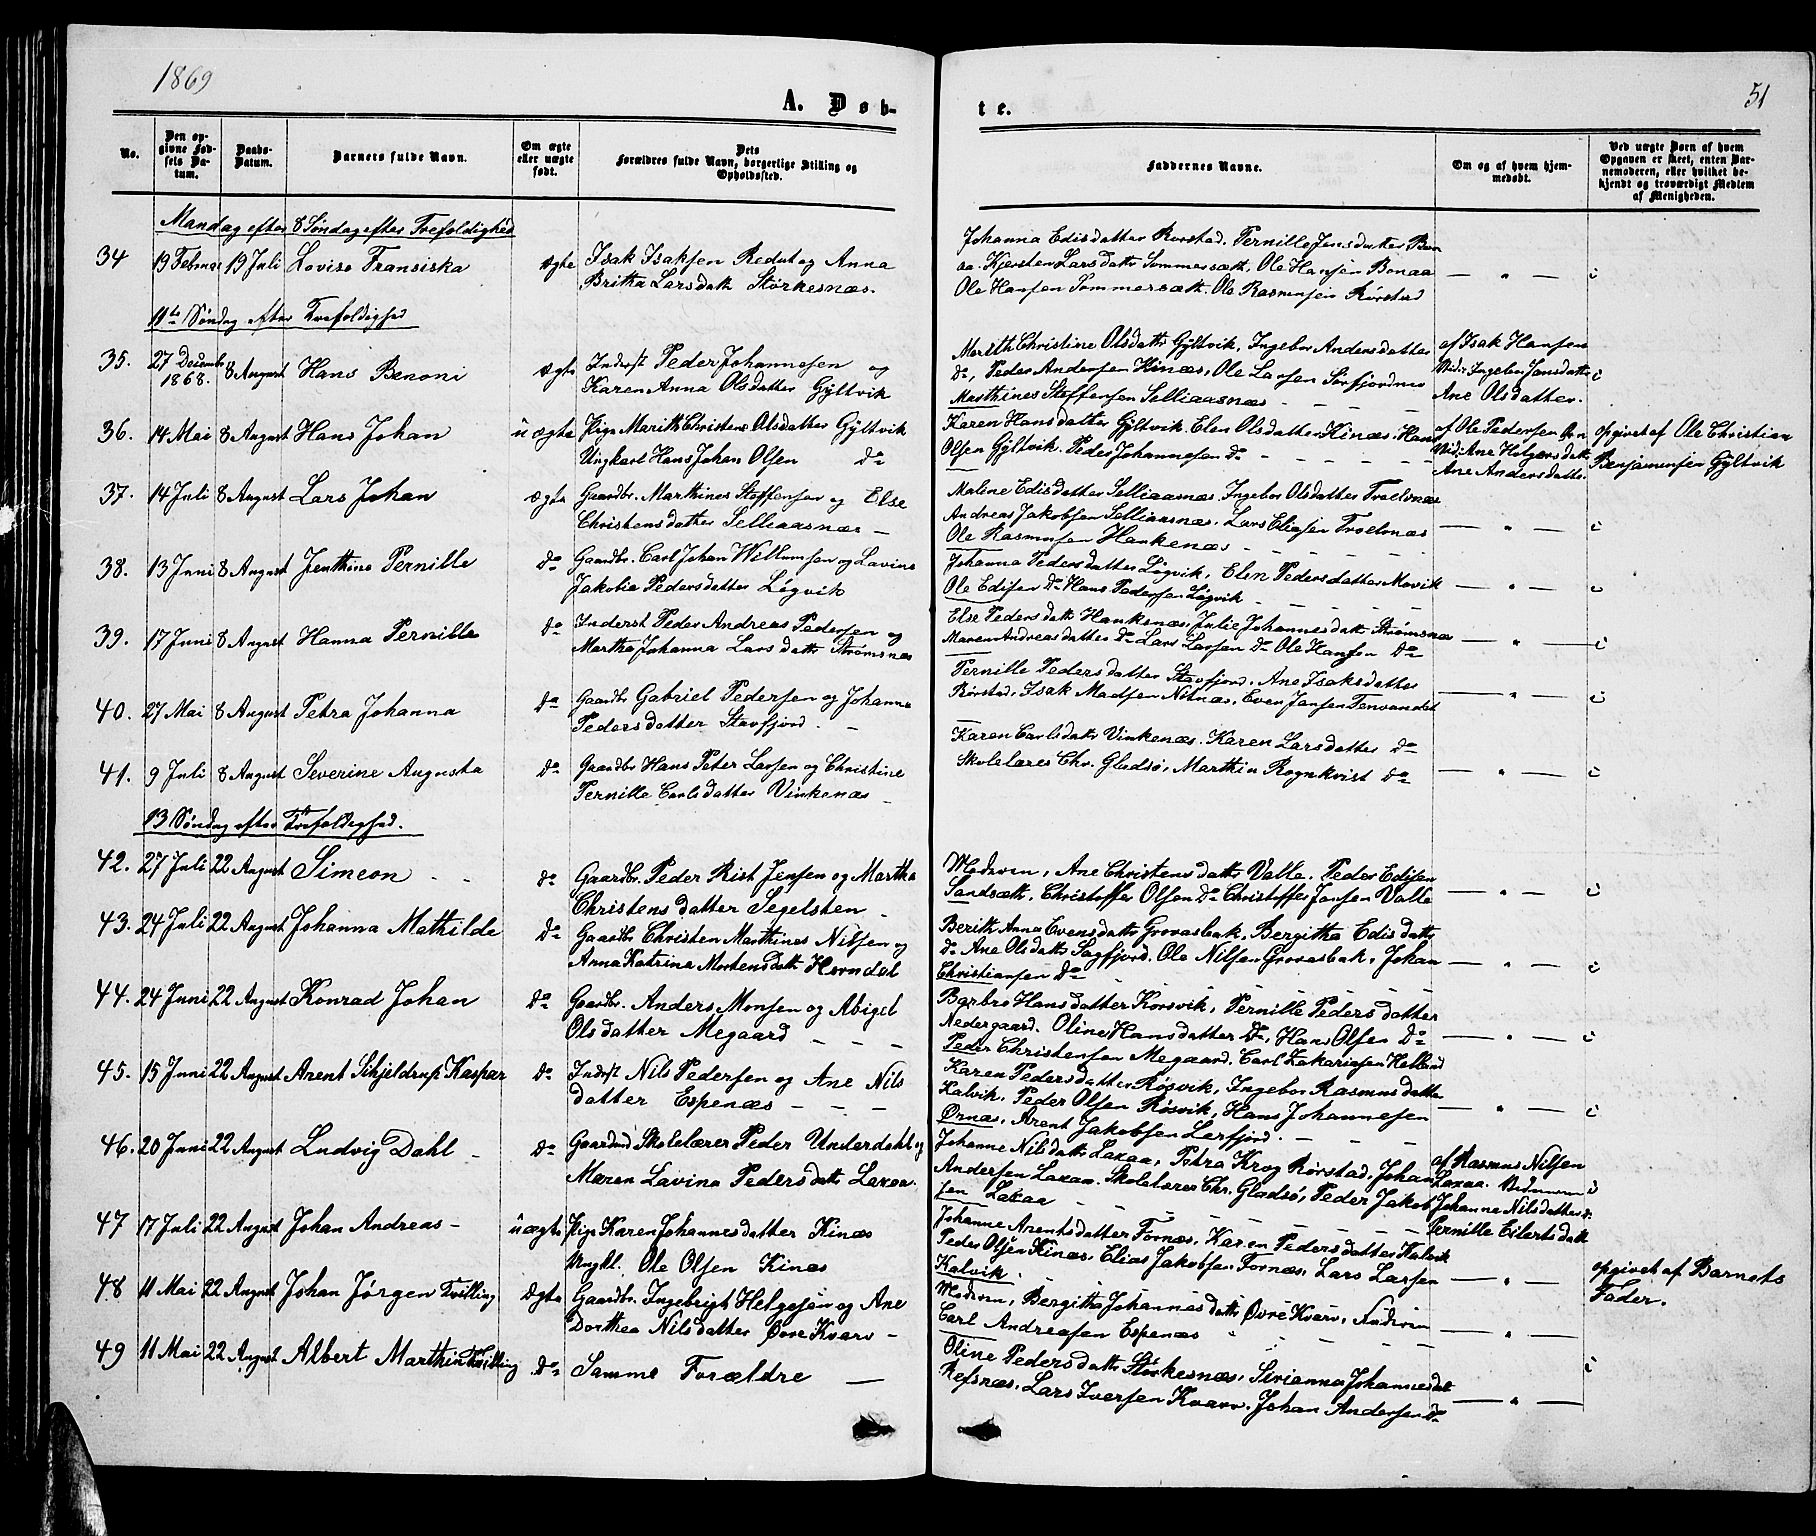 1869
A. Døb-
te.
51
No.
Den op-
givne Fød-
sels Da-
tum.
Daabs-
Datum.
Barnets fulde Navn.
Om ægte
eller uægte
født.
Dets
Forældres fulde Navn, borgerlige Stilling og
Opholdssted.
Faddernes Navne.
Om og af hvem hjem-
medøbt.
Ved uægte Børn af hvem
Opgaven er skeet, enten Bar-
nemoderen, eller hvilket be-
kjendt og troværdigt Medlem
af Menigheden.
Mandag efter 8 Søndag efter Trefoldighed
34 19 Februar 19 Juli Lovise Fransiska ægte Isak Isaksen Redut og Anna
Britha Larsdatt Størkesnæs.
Johanna Edisdatter Rørstad. Pernille Jensdatter Bon
aa. Kjersten Larsdattr Sommersætt, Ole Hansen Bonaa
Ole Hansen Sommersætt. Ole Rasmusen Rørstad
11te Søndag efter Trefoldighed
35. 27 Decembr 1868. 8 August Hans Benoni ægte Inderst Peder Johannesen og
Karen Anna Olsdatter Gyltvik
Marith Christine Olsdattr Gyltvik. Ingebor Andersdatter
Do, Peder Andersen Kinæs, Ole Larsen Sørfjordmo
Marthines Steffensen Selliaasnæs
af Isak Hansen
Vidr. Ingebor Jansdattr
Ane Olsdatter.
36. 14 Mai 8 August Hans Johan uægte Pige Marith Christene Olsdatter Gyltvik
Ungkarl Hans Johan Olsen Do
Karen Hansdatter Gyltvik. Elen Olsdatter Kinæs. Hans
Olsen Gyltvik. Peder Johannesen Do
af Ole Pedersen
Vidr: Ane Holgersdatt
Ane Andersdatter
opgivet af Ole Christian
Benjaminsen Gyltvik
37. 14 Juli 8 August Lars Johan ægte Gaardbr. Marthines Steffensen og Else
Christensdatter Selliaasnæs
Malene Edisdatter Selliaasnæs. Ingebor Olsdatter Troelsnæs
Andreas Jakobsen Selliaasnæs. Lars Eliasen Troelsnæs
Ole Rasmusen Hankenæs
38. 13 Juni 8 August Jenthine Pernille Do Gaardbr. Carl Johan Willumsen og Lavine
Jakobia Pedersdatter Løgvik
Johanna Pedersdatter Løgvik, Elen Pedersdatter Movik
Ole Edisen Do Hans Pedersen Løgvik
39. 17 Juni 8 August Hanna Pernille Do Inderst Peder Andreas Pedersen og
Martha Johanna Larsdattr Strømsnæs
Else Pedersdatt Hanksnæs, Julie Johannesdatt Strømsnæs
Maren Andreasdatter Do Lars Larsen Do Ole Hansen Do
40. 27 Mai 8 August Petra Johanna Do Gaardbr Gabriel Pedersen og Johanna
Pedersdatter Stavfjord.
Pernille Pedersdatter Stavfjord. Ane Isaksdatter
Rørstad, Isak Madsen Nilnæs, Even Jensen Tenvandet
41. 9 Juli 8 August Severine Augusta Do Gaardbr Hans Peter Larsen og Christine
Pernille Carlsdatter Vinkenæs
Karen Carlsdattr Vinkenæs. Karen Larsdatter do
Skolelærer Chr. Gladsø, Marthin Rognkvist Do
13 Søndag efter Trefoldighed.
42. 27 Juli 22 August Simeon Do Gaardbr. Peder Rist Jensen og Martha
Christensdatter Segelsten
Moderen, Ane Christensdattr Valle. Peder Edisen
Sandsætt. Christoffer Olsen Do Christoffer Jansen Valle
43. 24 Juli 22 August Johanna Mathilde Do Gaardbr Christen Marthines Nilsen og
Anna Katrina Mortensdatt Horndal
Berith Anna Evensdattr Grovasbak. Bergitha Edisdattr
Do Ane Olsdattr Sagfjord. Ole Nilsen Grovasbak, Johan
Christiansen Do
44. 24 Juni 22 August Konrad Johan Do Gaardbr. Anders Monsen og Abigel
Olsdatter Megaard
Barbro Hansdatter Korsvik, Pernille Pedersdatter
Nedergaard. Oline Hansdatter Do, Hans Olsen Do
Peder Christensen Megaard. Carl Zakariasen Helland
45. 15 Juni 22 August Arent Schjeldrup Kaspar Do Inderst Nils Pedersen og Ane Nils
datter Espenæs
Karen Pedersdatter Røsvik, Ingebor Rasmusdatter
Kalvik. Peder Olsen Røsvik, Hans Johannesen
Ørnæs, Arent Jakobsen Lerfjord.
46. 20 Juni 22 August Ludvig Dahl Do Gaardmd Skolelærer Peder Underdahl og
Maren Lavina Pedersdatt Laxaa.
Johanne Nilsdattr Laxaa, Petra Krog Rørstad, Johan
Andersen Laxaa. Skolelærer Chr. Gladsø, Peder Jakob
sen Laxaa
af Rasmus Nilsen
Laxaa.
Johanne Nilsdatter
Pernille Eilertsdatt
47 17 Juli 22 August Johan Andreas uægte Pige Karen Johannesdatter Kinæs
Ungkl. Ole Olsen Kinæs
Johanne Arentsdatter Fornæs, Karen Pedersdatter Kalvik
Peder Olsen Kinæs. Elias Jakobsen Fornæs, Lars Larsen
Kalvik.
opgivet af Barnets
Fader.
48 11 Mai 22 August Johan Jørgen Tvilling Ægte Gaardbr. Ingebrigt Helgesen og Ane
Dorthea Nilsdatter Øvre Kvarv
Moderen, Bergitha Johannesdattr Øvre Kvarv, Faderen
Carl Andreasen Espenæs
49 11 Mai 22 August Albert Marthin Tvilling Do Samme Forældre
Oline Pedersdattr Størkesnæs, Sirianna Johannesdat
Refsnæs, Lars Iversen Kvarv. Johan Andersen Do